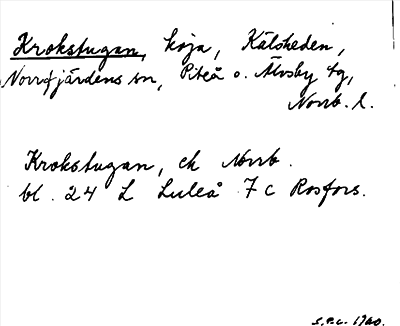 Krokstugan, koja, Kälsheden,
Norrfjärdens sn, Piteå o. Älvsby tg,
Norrb. l.
Krokstugan, ek Norrb.
bl. 24 L Luleå 7 c Rosfors.
S.P.C. 1960.